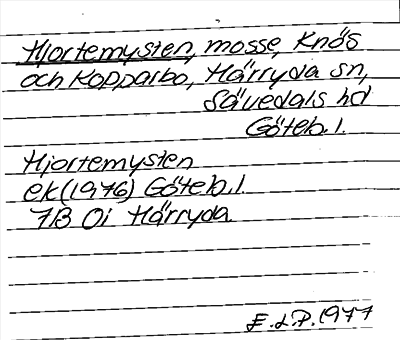 Hjortemysten, mosse, Knös
och Kopparbo, Härryda sn,
Sävedals hd
Göteb. l.
Hjortemysten
ek (1976) Göteb. l.
7B 0i Härryda
E.L.P. 1977